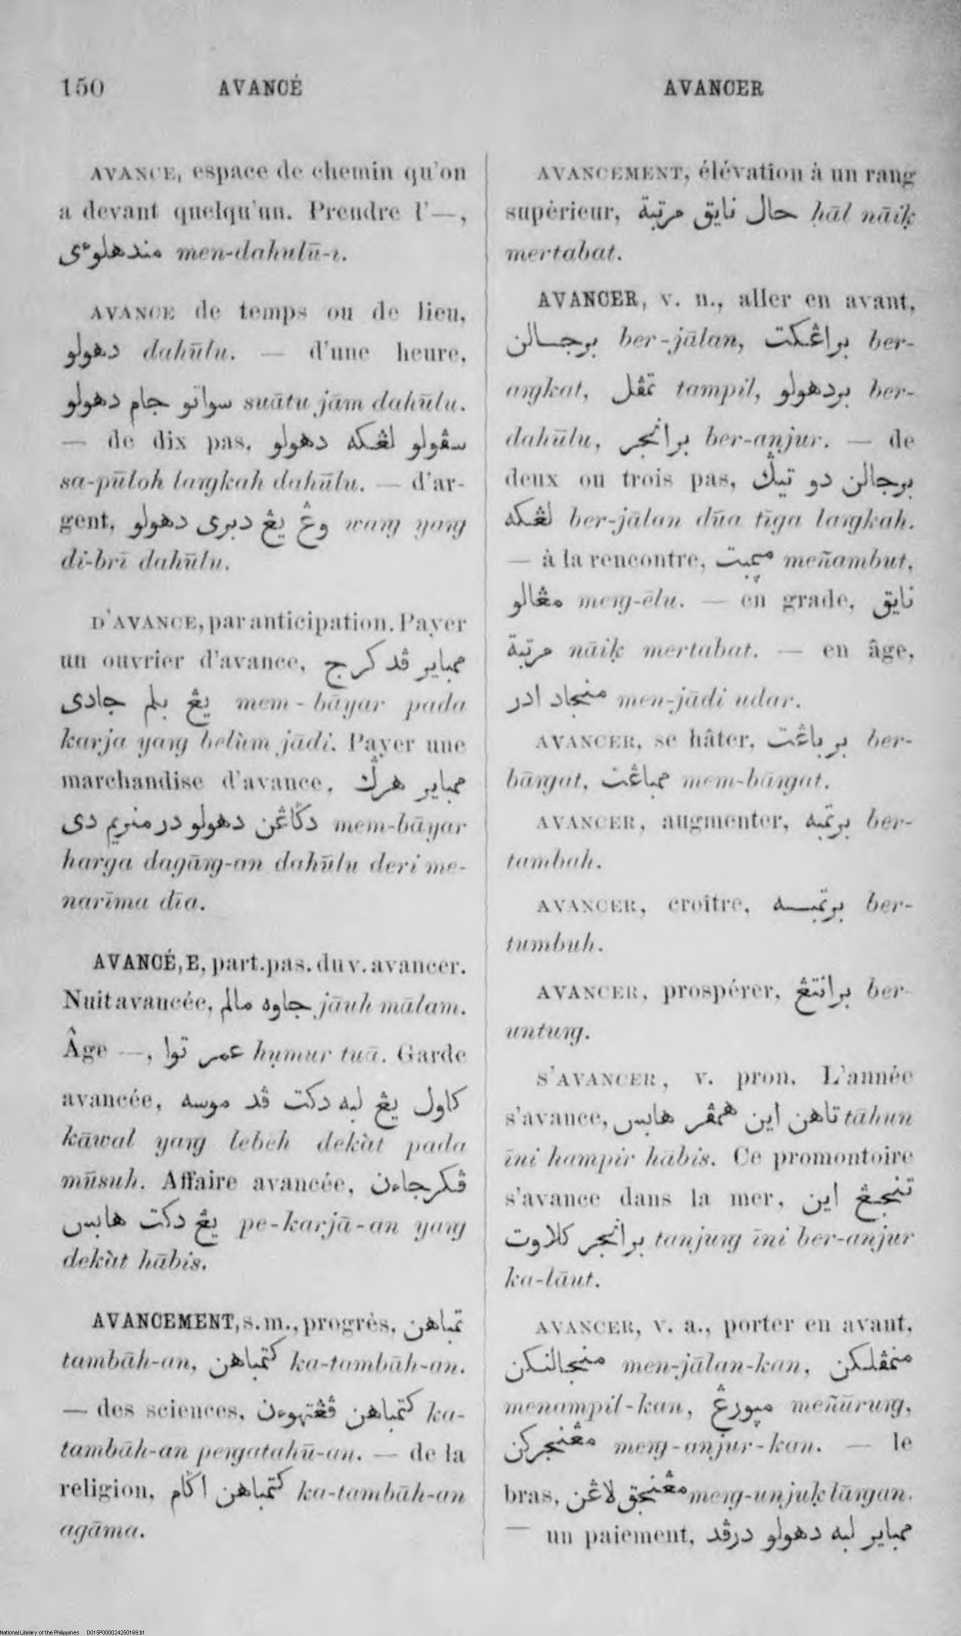 150 AVANCÉ AVANCER
AVANCE, espace de chemin qu'on
a devant quelqu'un. Prendre l'—,
مندهلوءى men-dahulū-ı.
AVANCE de temps ou de lieu,
دهولو dahūlu. — d'une heure,
سواتو جام دهولو suātu jām dahūlu.
— de dix pas, سڤولو لڠكه دهولو
sa-pūloh laṅgkah dahūlu. — d'ar-
gent, وڠ يڠ دبرى دهولو waṅg yaṅg
di-brī dahūlu.
D'AVANCE, par anticipation. Payer
un ouvrier d'avance, ممباير ڤد كرج
يڠ بلم جادى mem-bāyar pada
karja yaṅg belùm jādi. Payer une
marchandise d'avance, ممباير هرݢ
دݢاڠن دهولو در منريم دى mem-bāyar
harga dagāṅg-an dahūlu deri me-
narīma dīa.
AVANCÉ, E, part. pas. du v. avancer.
Nuit avancée, جاوه مالم jāuh mālam.
Âge —, عمر توا ḥumur tuā. Garde
avancée, كاول يڠ لبه دكت ڤد موسه
kāwal yaṅg lebeh dekàt pada
mūsuh. Affaire avancée, ڤكرجاءن
يڠ دكت هابس pe-karjā-an yaṅg
dekàt hābis.
AVANCEMENT, s. m., progrès, تمباهن
tambāh-an, كتمباهن ka-tambāh-an.
— des sciences, كتمباهن ڤڠتهوءن ka-
tambāh-an peṅgatahū-an. — de la
religion, كتمباهن اݢام ka-tambāh-an
agāma.
AVANCEMENT, élévation à un rang
supérieur, حال نايق مرتبة ḥāl nāiḳ
mertabat.
AVANCER, v. n., aller en avant,
برجالن ber-jālan, براڠكت ber-
aṅgkat, تمڤل tampil, بردهولو ber-
dahūlu, برانجر ber-anjur. — de
deux ou trois pas, برجالن دو تيݢ
لڠكه ber-jālan dūa tīga laṅgkah.
— à la rencontre, meñambut,
مڠالو meṅg-ēlu. — en grade, نايق
مرتبة nāiḳ mertabat. — en âge,
منجاد ادر men-jādi udar.
AVANCER, se hâter, برباڠت ber-
bāṅgat, ممباڠت mem-bāṅgat.
AVANCER, augmenter, برتمبه ber-
tambah.
AVANCER, croître, برتمبه ber-
tumbuh.
AVANCER, prospérer, برانتڠ ber-
untuṅg.
S'AVANCER, v. pron. L'année
s'avance, تاهن اين همڤر هابس tāhun
īni hampir hābis. Ce promontoire
s'avance dans la mer, تنجڠ اين
برانجر كلاوت tanjuṅg īni ber-anjur
ka-lāut.
AVANCER, v. a., porter en avant,
منجالنكن men-jālan-kan, منمڤلكن
menampil-kan, meñūruṅg,
مڠنجركن meṅg-anjur-kan. — le
bras, مڠنجق لاڠن meṅg-unjuḳ lāṅgan.
— un paiement, ممباير لبه دهولو درڤد
National Library of the Philippines